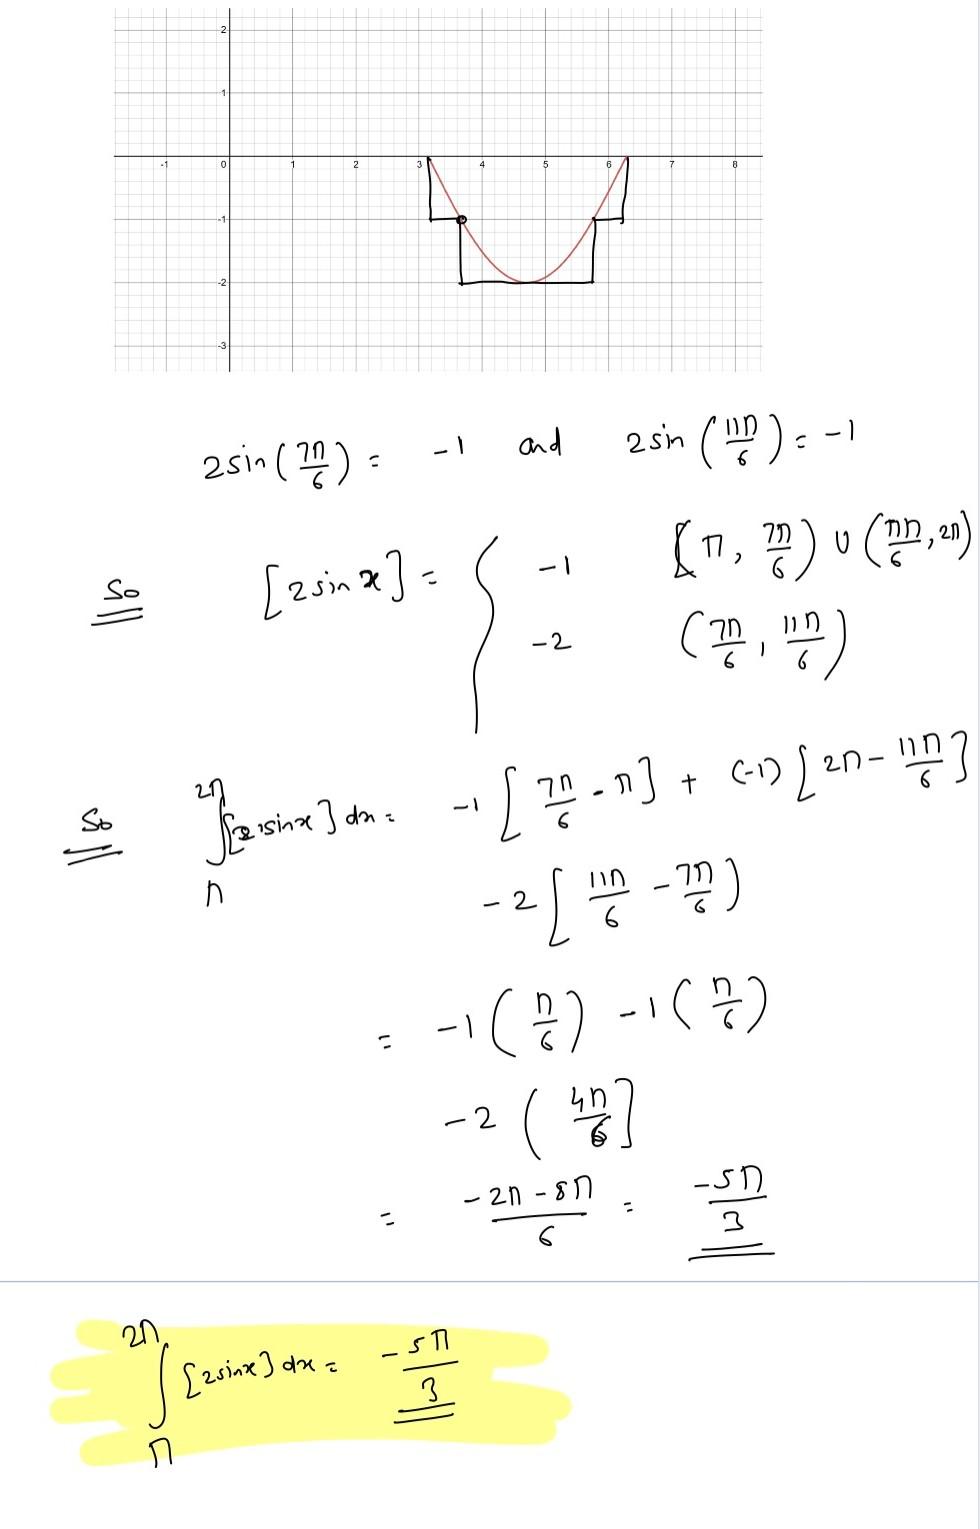 2
1
-1 0 1 2 3 4 5 6 7 8
-1
-2
-3
2sin(7π/6) = -1 and 2sin(11π/6) = -1
So [2sinx] = { -1 [π, 7π/6) ∪ (11π/6, 2π)
-2 (7π/6, 11π/6)
So ∫_π^2π [2sinx] dx = -1[7π/6 - π] + (-1)[2π - 11π/6]
-2[11π/6 - 7π/6)
= -1(π/6) -1(π/6)
-2(4π/6]
= (-2π - 8π)/6 = -5π/3
∫_π^2π [2sinx] dx = -5π/3